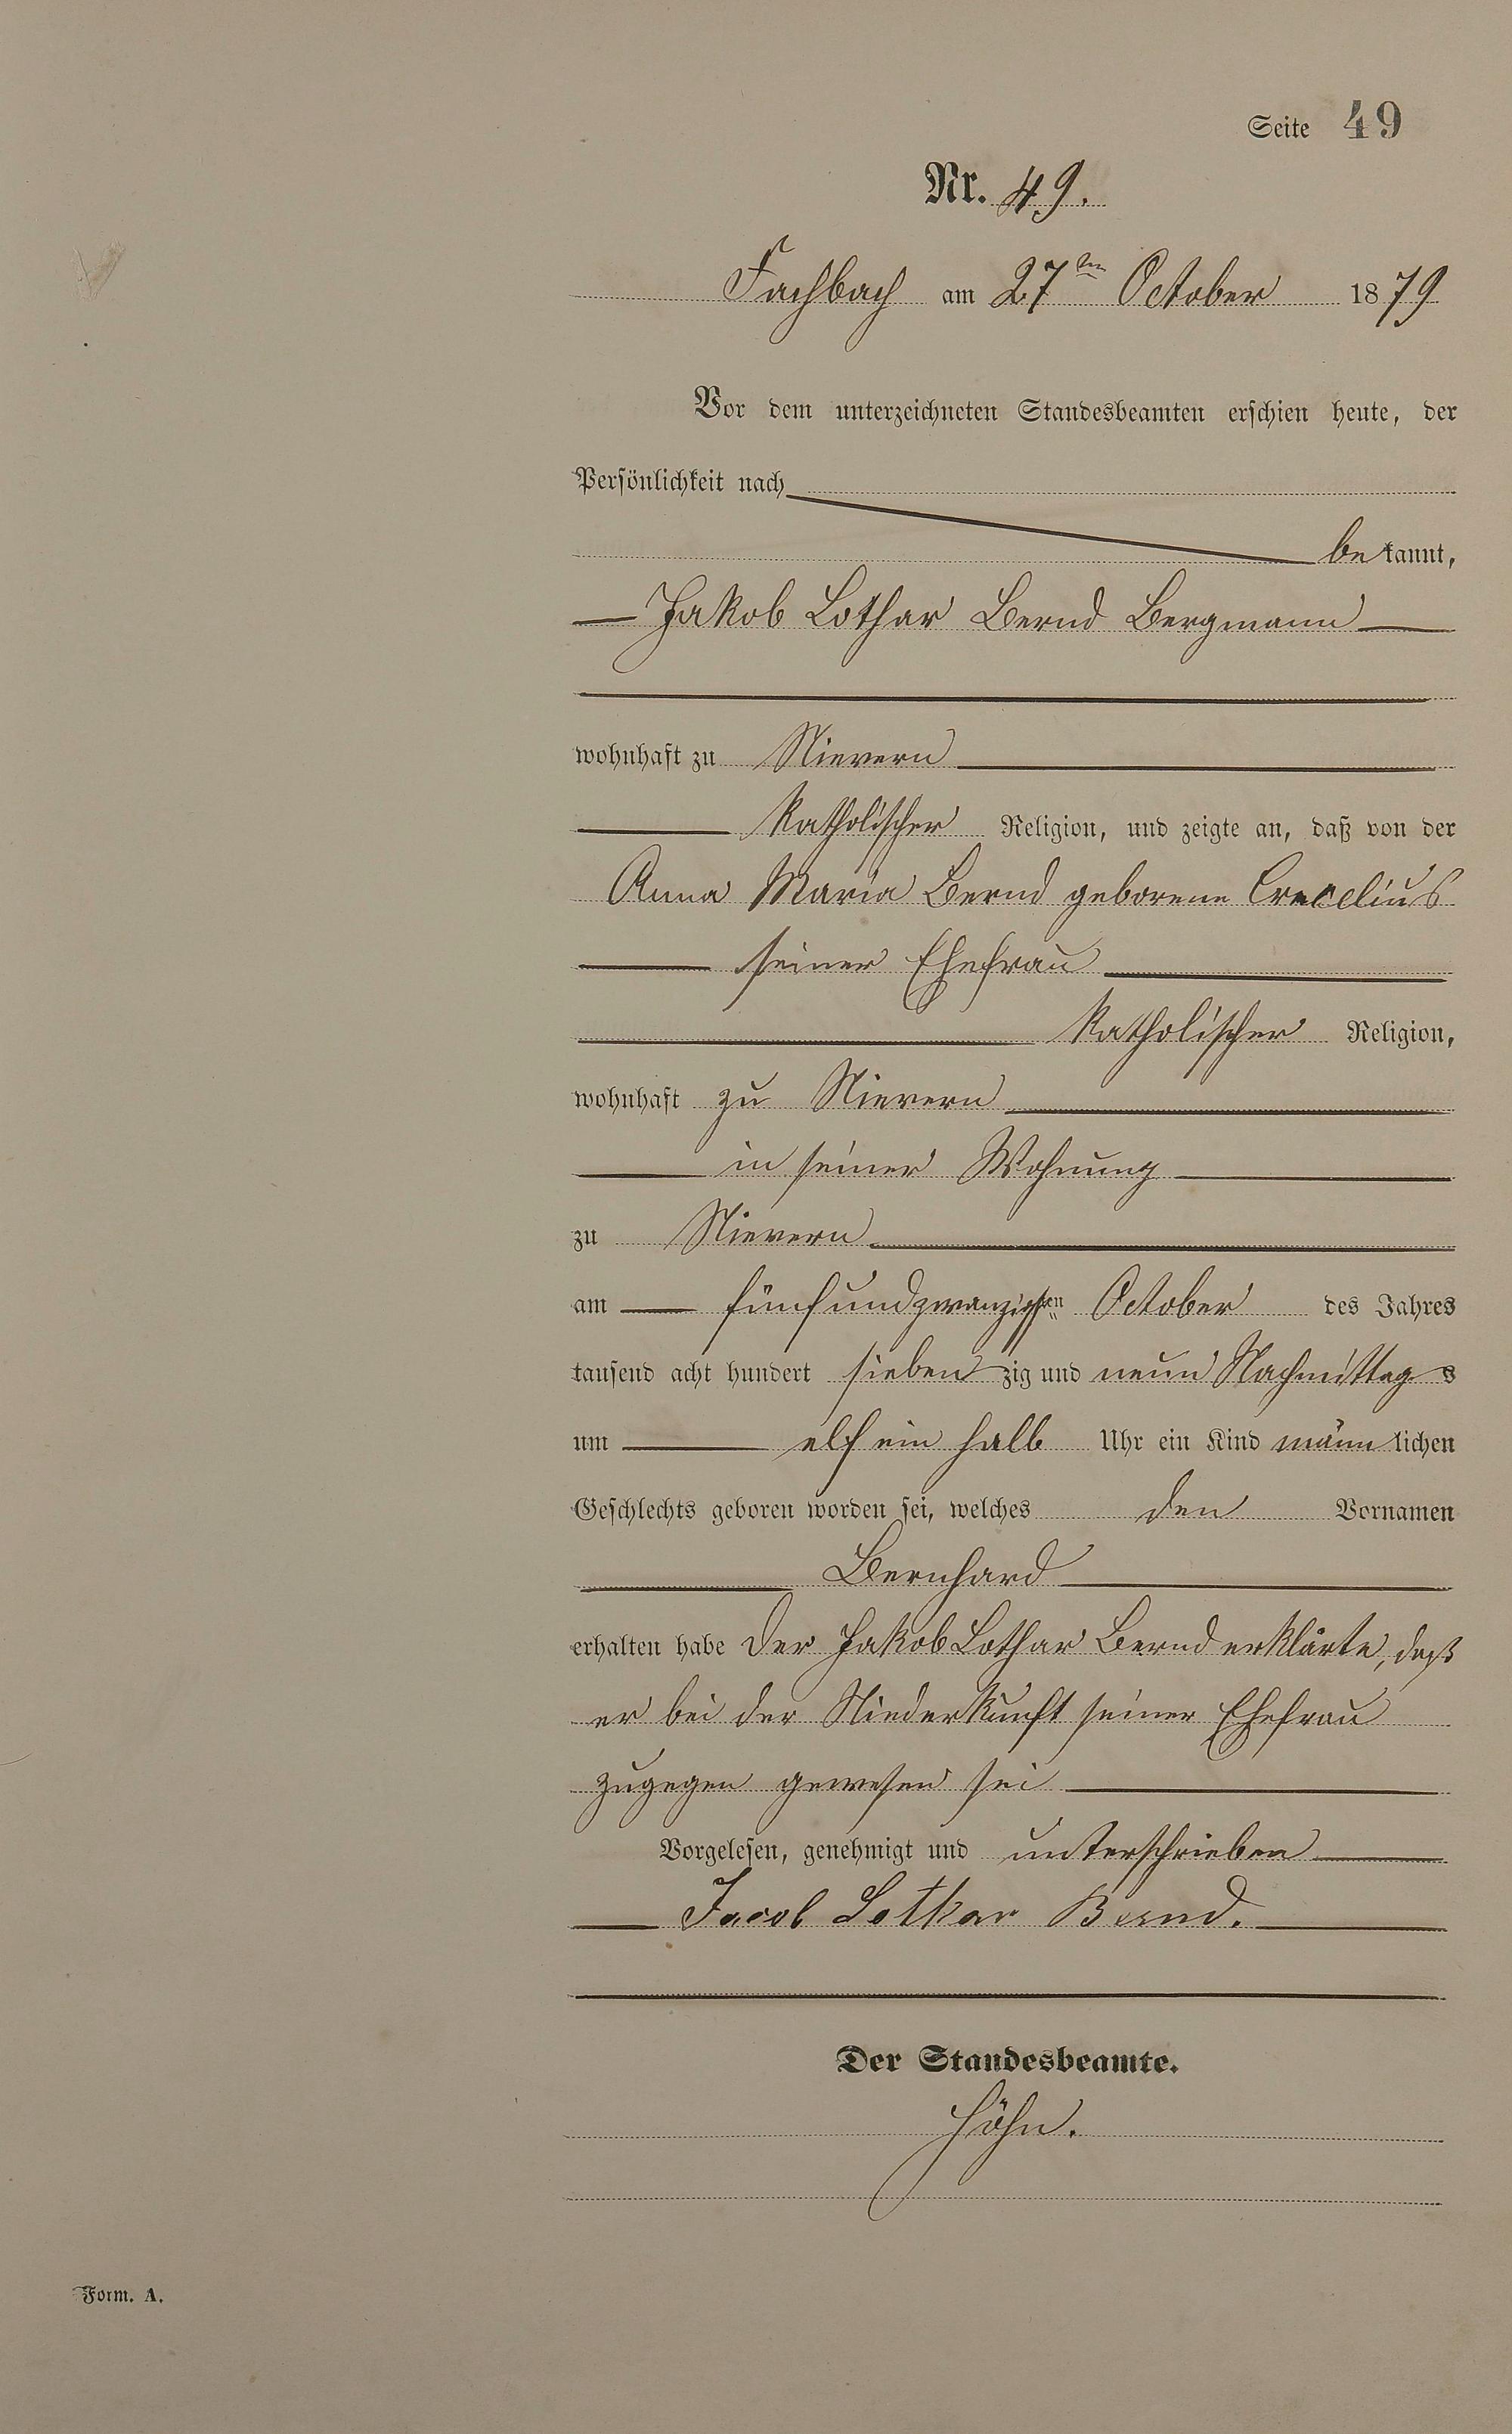 Seite 49
Nr. 49.
Fachbach am 27ten October 1879
Vor dem unterzeichneten Standesbeamten erschien heute, der
Persönlichkeit nach
bekannt,
Jakob Lothar Bernd Bergmann
wohnhaft zu Nievern
katholischer Religion, und zeigte an, daß von der
Anna Maria Bernd geborene Crecelius
seiner Ehefrau
katholischer Religion,
wohnhaft zu Nievern
in seiner Wohnung
zu Nievern
am fünfundzwanzigsten October des Jahres
tausend acht hundert siebenzig und neun Nachmittags
um elf ein halb Uhr ein Kind männlichen
Geschlechts geboren worden sei, welches den Vornamen
Bernhard
erhalten habe Der Jakob Lothar Bernd erklärte, daß
er bei der Niederkunft seiner Ehefrau
zugegen gewesen sei
Vorgelesen, genehmigt und unterschrieben
Jacob Lothar Bernd.
Der Standesbeamte.
Höhn.
Form. A.